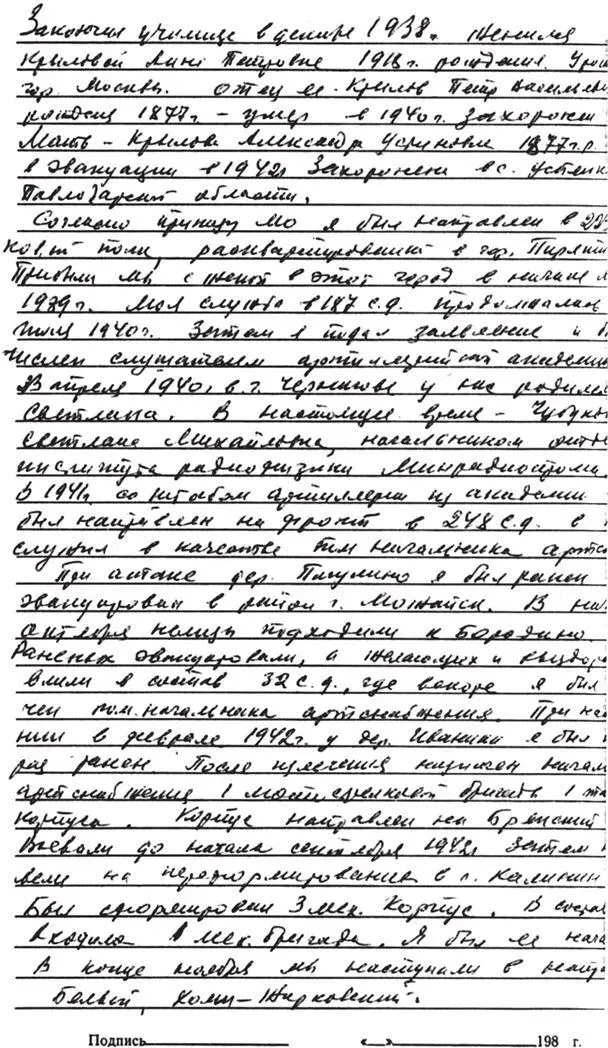 Закончил училище в декабре 1938г. Женился
Крыловой Анне Петровне 1918г. рождения. Урож
гор. Москвы. Отец ее - Крылов Петр Васильеви
рождения 1877г. - умер в 1940г. Захоронен
Мать - Крылова Александра Устиновна 1877г.р.
в эвакуации в 1942г Захоронена в с.
Павлодарской области.
Согласно приказу МО я был направлен в
ковый полк, расквартированный в гор. Пирятин
Прибыли мы с женой в этот город в начале
1939г. Моя служба в 187 с.д. продолжалась
1940г. Затем я подал заявление и
числен слушателем артиллерийской академии
В апреле 1940г. в г. Чернигове у нас родилась
Светлана. В настоящее время -
Светлана Михайловна, начальником отде
института радиофизики Минрадиопрома
В 1941г. со штабом артиллерии из академии
был направлен на фронт в 248 с.д. в
служил в качестве пом начальника артс
При атаке дер. Пигулино я был ранен
эвакуирован в район г. Можайск. В на
октября немцы подходили к Бородино.
Раненых эвакуировали, а желающих и выздор
влили в состав 32 с.д., где вскоре я был
чен пом. начальника артснабжения. При на
нии в феврале 1942г. у дер. Иваники я был
раз ранен. После излечения назначен началь
артснабжения 1 мотострелковой бригады 1 та
корпуса. Корпус направлен на Брянский
Воевали до начала сентября 1942г Затем
вели на переформирование в г. Калинин
Был сформирован 3 мех. корпус. В состав
входила 1 мех. бригада. Я был ее нача
В конце ноября мы наступали в напр
Белый, Холм-Жирковский.
Подпись «__» 198 г.